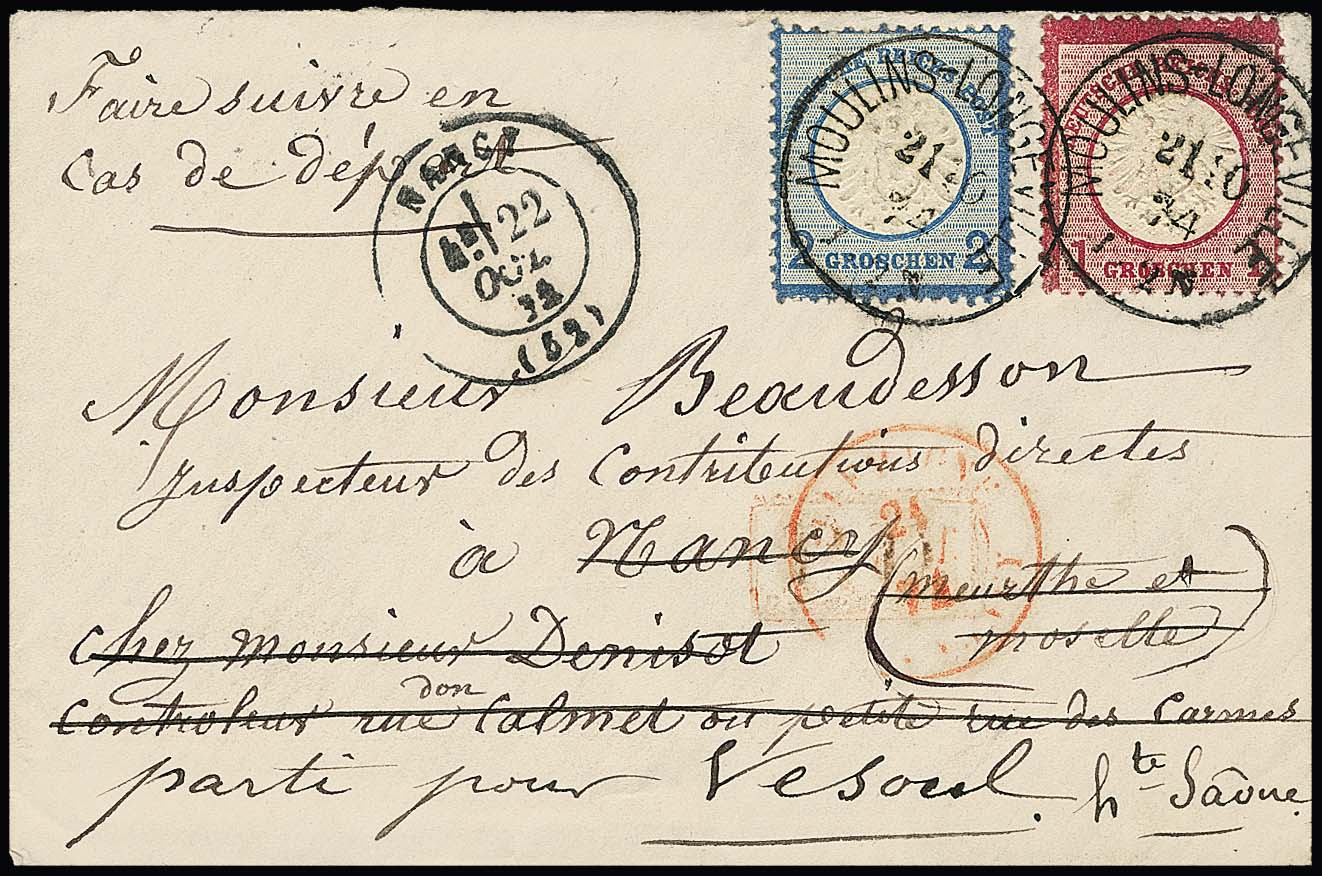 Faire suivre en
cas de départ
NANCY
22
OCT.
74
(52)
DEUTSCHE REICHS-POST
2 GROSCHEN 2
MOULINS-LONGEVILLE
21
DEUTSCHE REICHS-POST
1 GROSCHEN
MOULINS-LONGEVILLE
21 10
74
1 2N
Monsieur Beaudesson
Inspecteur des Contributions directes
à Nancy (meurthe et
moselle)
chez monsieur Denisot
Controleur rue don Calmet ou petite rue des Carmes
parti pour Vesoul. hte Saône.